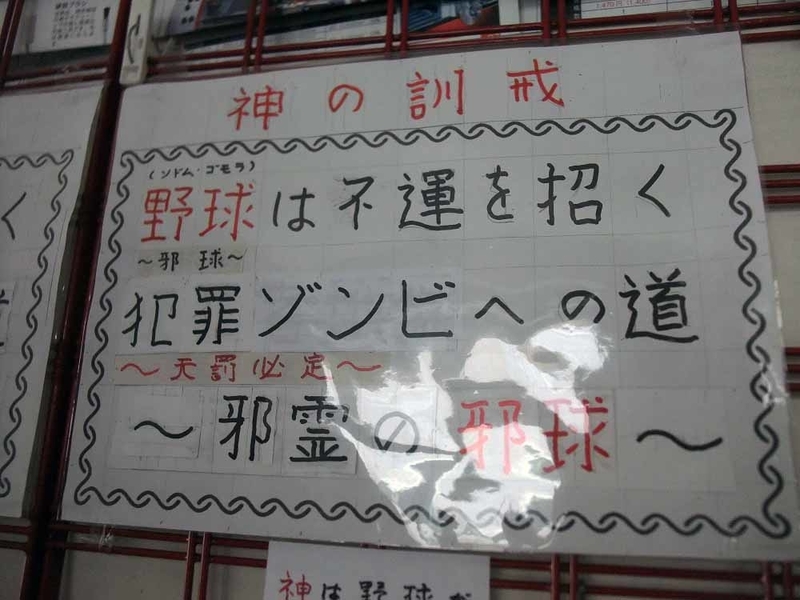 神の訓戒
(ソドム・ゴモラ)
野球は不運を招く
～邪球～
犯罪ゾンビへの道
～天罰必定～
～邪霊の邪球～
く
神は野球が